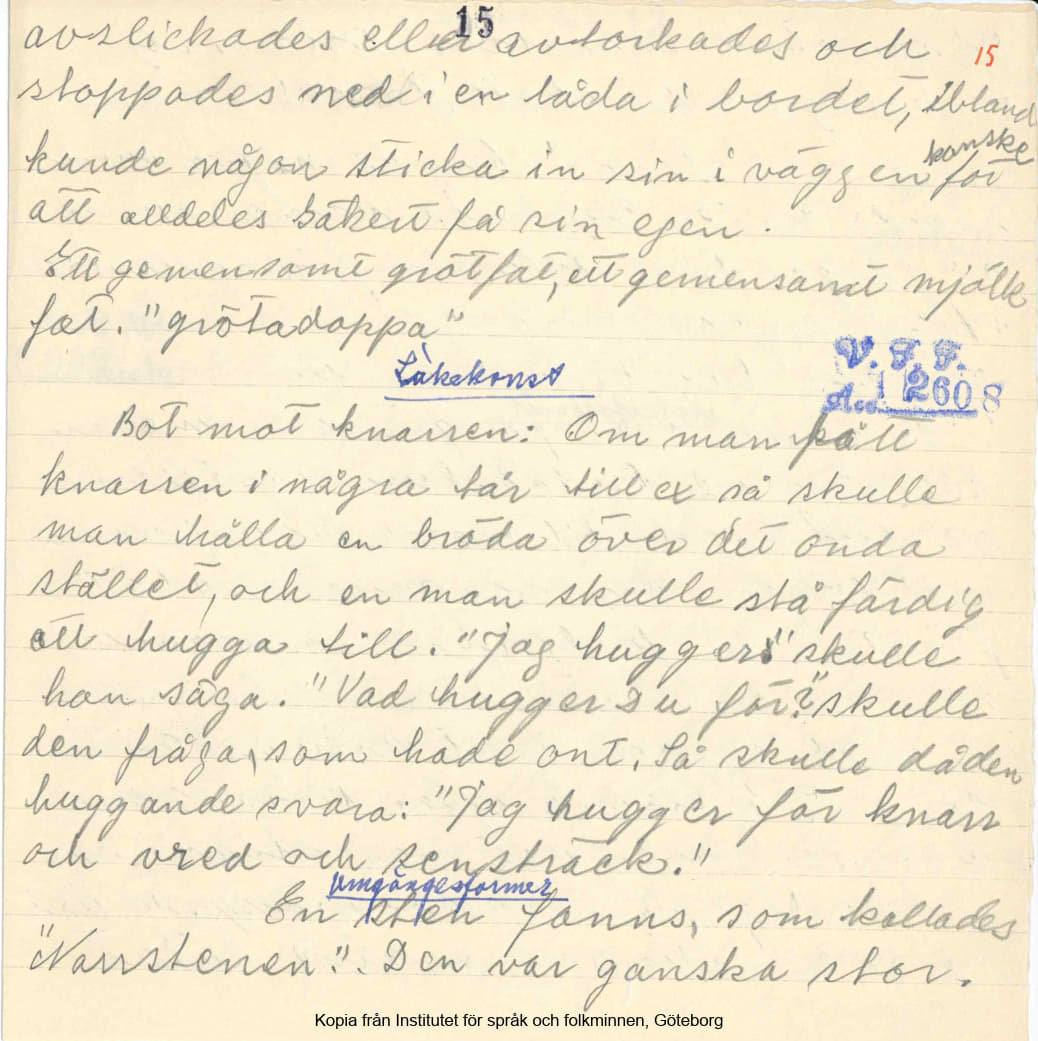 15
avslickades eller avtorkades och 15
stoppades ned i en låda i bordet, Ibland
kanske
kunde någon sticka in sin i väggen för
att alldeles säkert få sin egen.
Ett gemensamt grötfat, ett gemensamt mjölk
fat. "grötadoppa"
Läkekonst
V. F. F.
Acc. 12608
Bot mot knarren: Om man fått
knarren i några tår till ex så skulle
man hålla en bröda över det onda
stället, och en man skulle stå färdig
att hugga till. "Jag hugger!" skulle
han säga. "Vad hugger Du för?" skulle
den fråga, som hade ont. Så skulle då den
huggande svara: "Jag hugger för knarr
och vred och sensträck."
Umgängesformer
En sten fanns, som kallades
"Narrstenen". Den var ganska stor.
Kopia från Institutet för språk och folkminnen, Göteborg